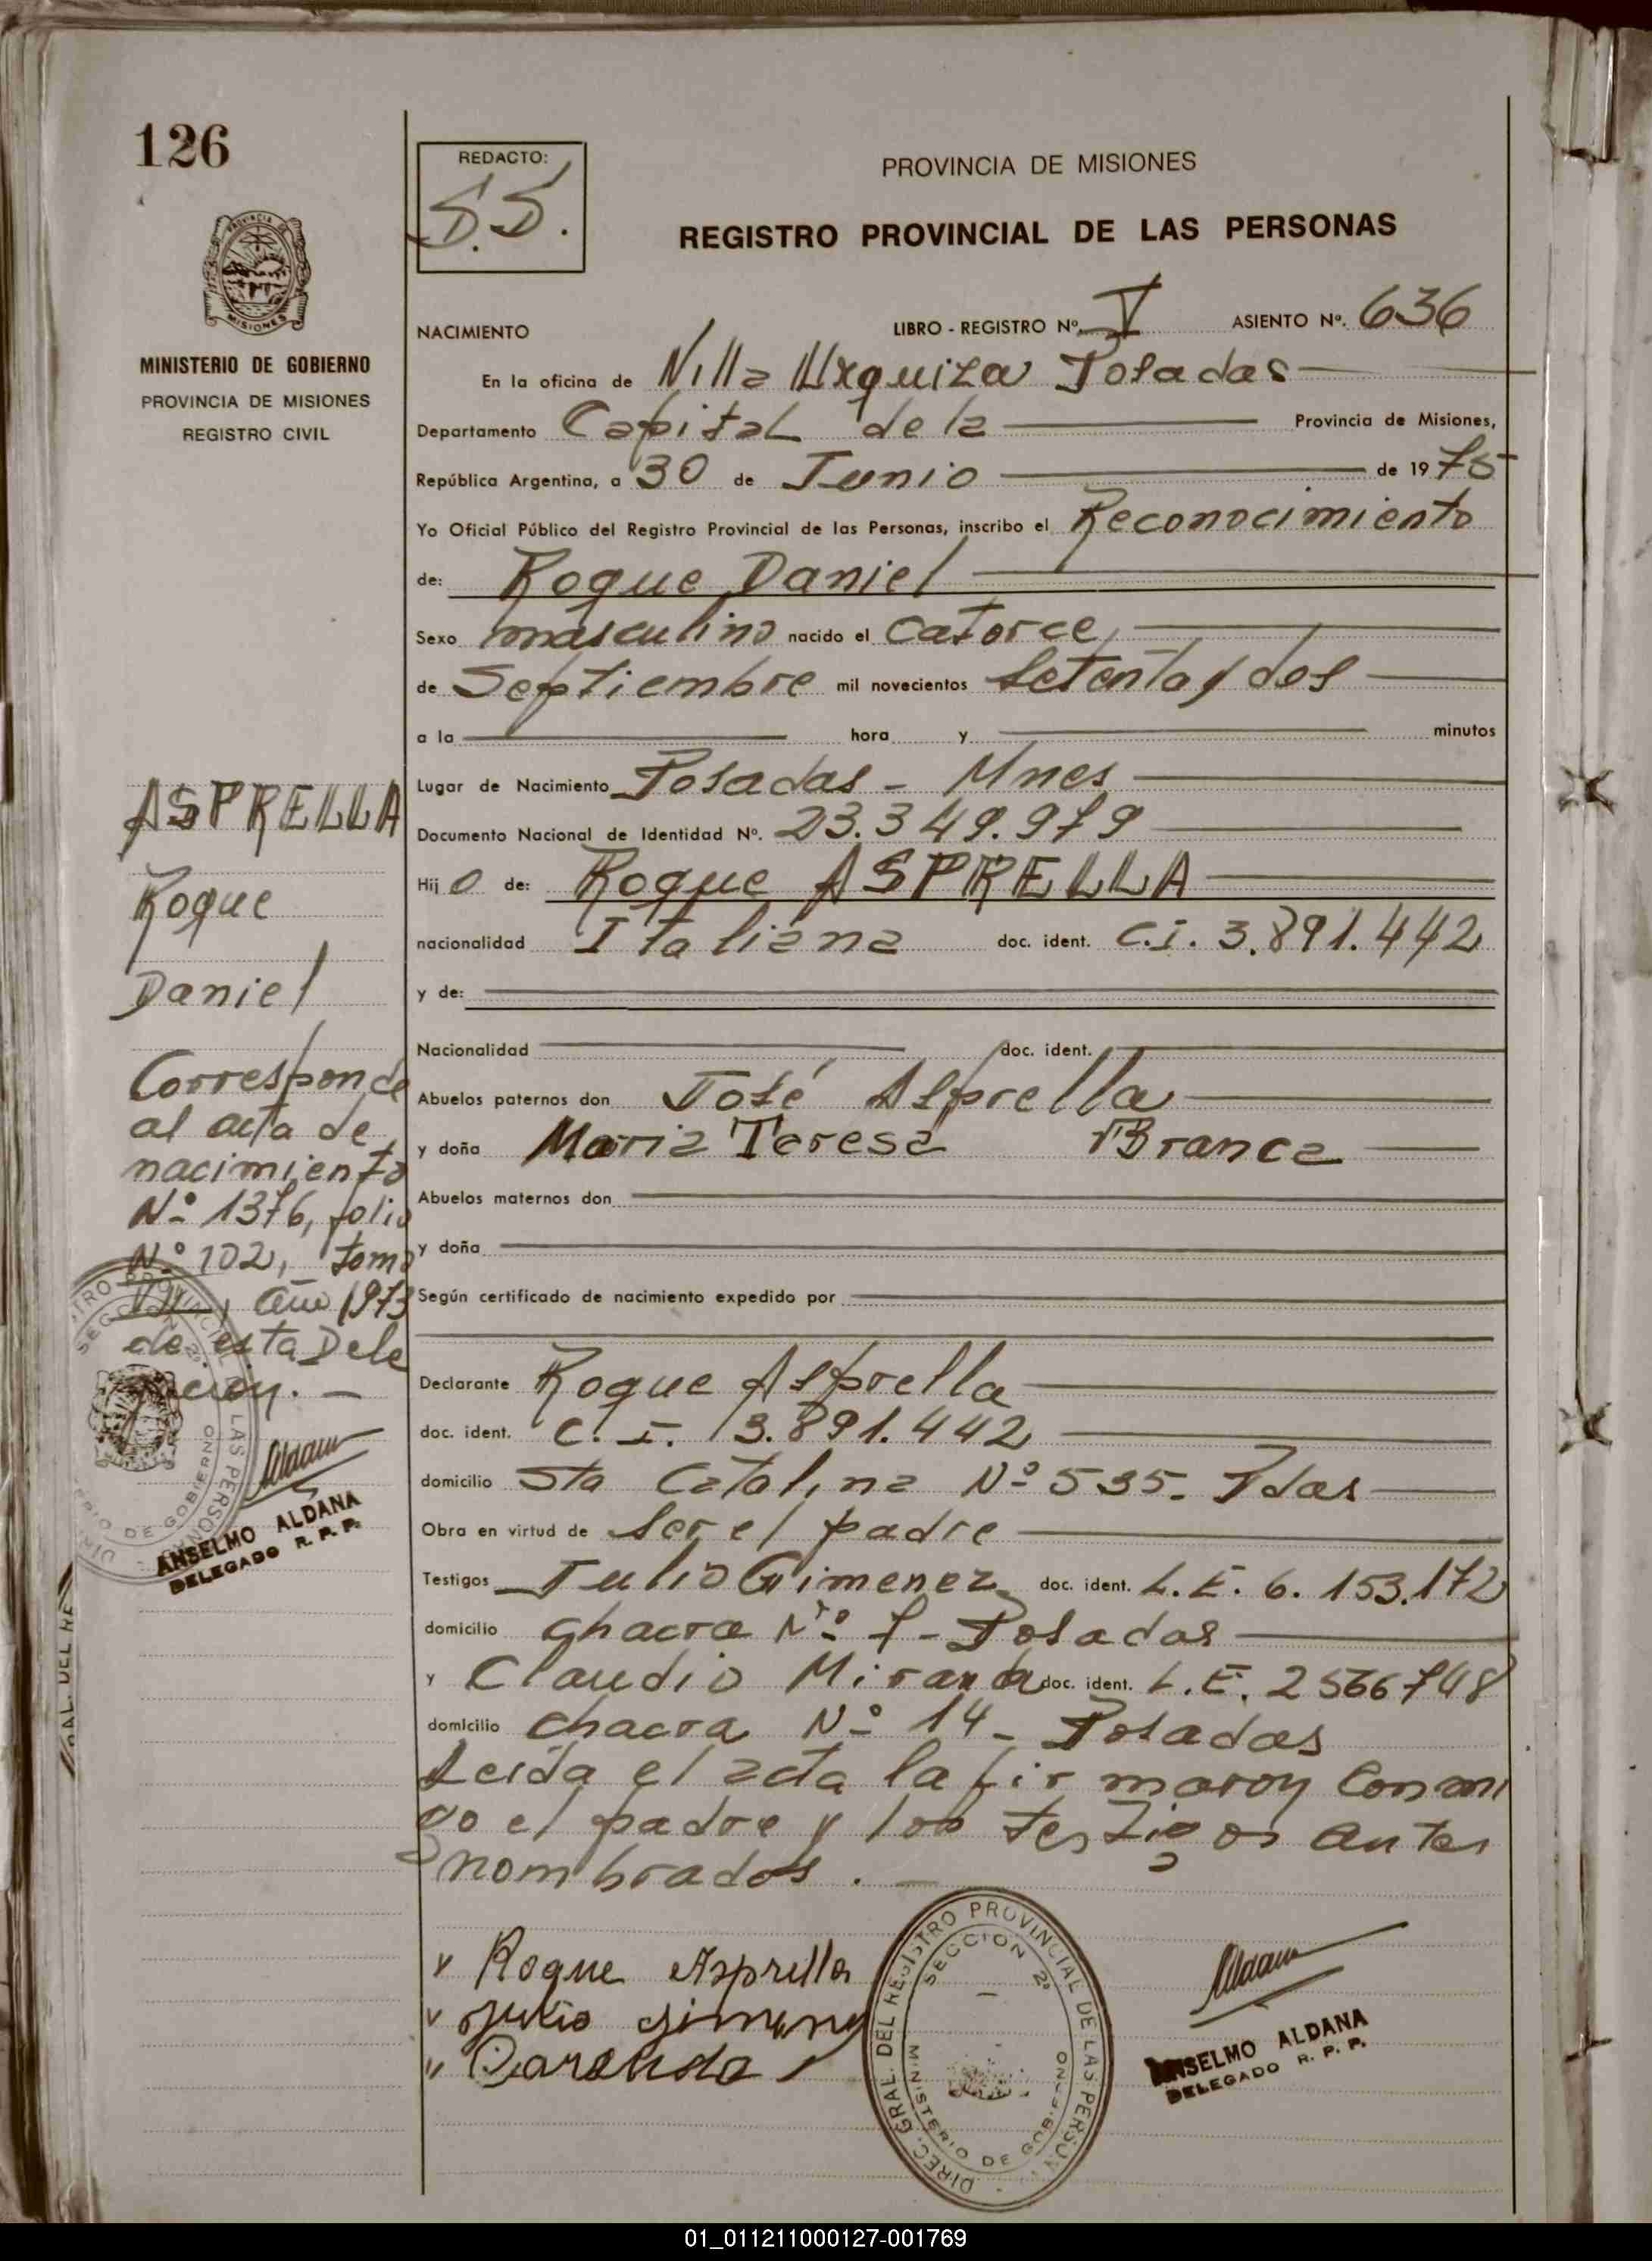 126
MINISTERIO DE GOBIERNO
PROVINCIA DE MISIONES
REGISTRO CIVIL
ASPRELLA
Roque
Daniel
Corresponde
al acta de
nacimiento
Nº 1376, folio
Nº 102, tomo
, Año 1973
de esta Dele
ANSELMO ALDANA
DELEGADO R. P. P.
REDACTO:
S.S.
PROVINCIA DE MISIONES
REGISTRO PROVINCIAL DE LAS PERSONAS
NACIMIENTO LIBRO - REGISTRO Nº. V ASIENTO Nº. 636
En la oficina de Villa Urquiza Posadas
Departamento Capital de la Provincia de Misiones,
República Argentina, a 30 de Junio de 1975
Yo Oficial Público del Registro Provincial de las Personas, inscribo el Reconocimiento
de: Roque Daniel
Sexo masculino nacido el catorce
de Septiembre mil novecientos setenta y dos
a la hora y minutos
Lugar de Nacimiento Posadas - Mnes
Documento Nacional de Identidad Nº. 23.349.979
Hijo de: Roque ASPRELLA
nacionalidad Italiana doc. ident. C.I. 3.891.442
y de:
Nacionalidad doc. ident.
Abuelos paternos don José Asprella
y doña Maria Teresa Branca
Abuelos maternos don
y doña
Según certificado de nacimiento expedido por
Declarante Roque Asprella
doc. ident. C.I. 3.891.442
domicilio Sta Catalina Nº 535- Pdas
Obra en virtud de ser el padre
Testigos Julio Gimenez doc. ident. L.E. 6.153.172
domicilio chacra Nº 7- Posadas
y Claudio Miranda doc. ident. L.E. 2566748
domicilio chacra Nº 14- Posadas
Leida el acta la firmaron conmi
go el padre y los testigos antes
nombrados. -
Roque Asprella
Julio Gimenez
DIREC. GRAL. DEL REGISTRO PROVINCIAL DE LAS PERSONAS
SECCION 2º
MINISTERIO DE GOBIERNO
ANSELMO ALDANA
DELEGADO R. P. P.
01_011211000127-001769